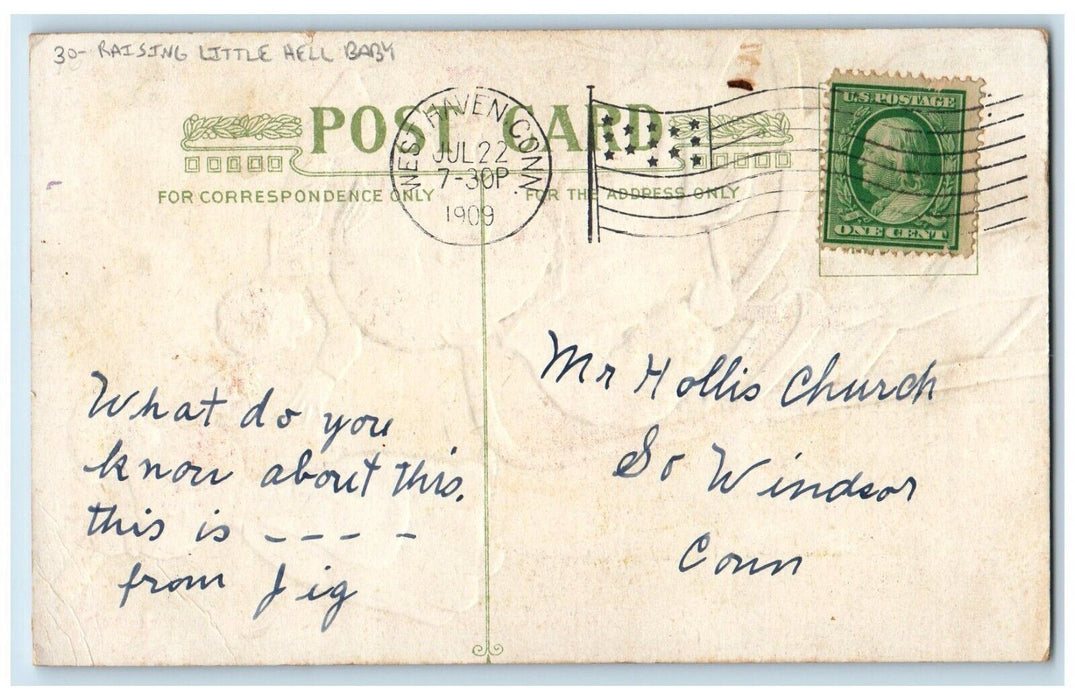 30- RAISING LITTLE HELL BABY
POST CARD
FOR CORRESPONDENCE ONLY
FOR THE ADDRESS ONLY
WEST HAVEN, CONN.
JUL 22
7-30P
1909
U.S. POSTAGE
ONE CENT
What do you
know about this.
this is - - - -
from Jig
Mr Hollis Church
So Windsor
Conn